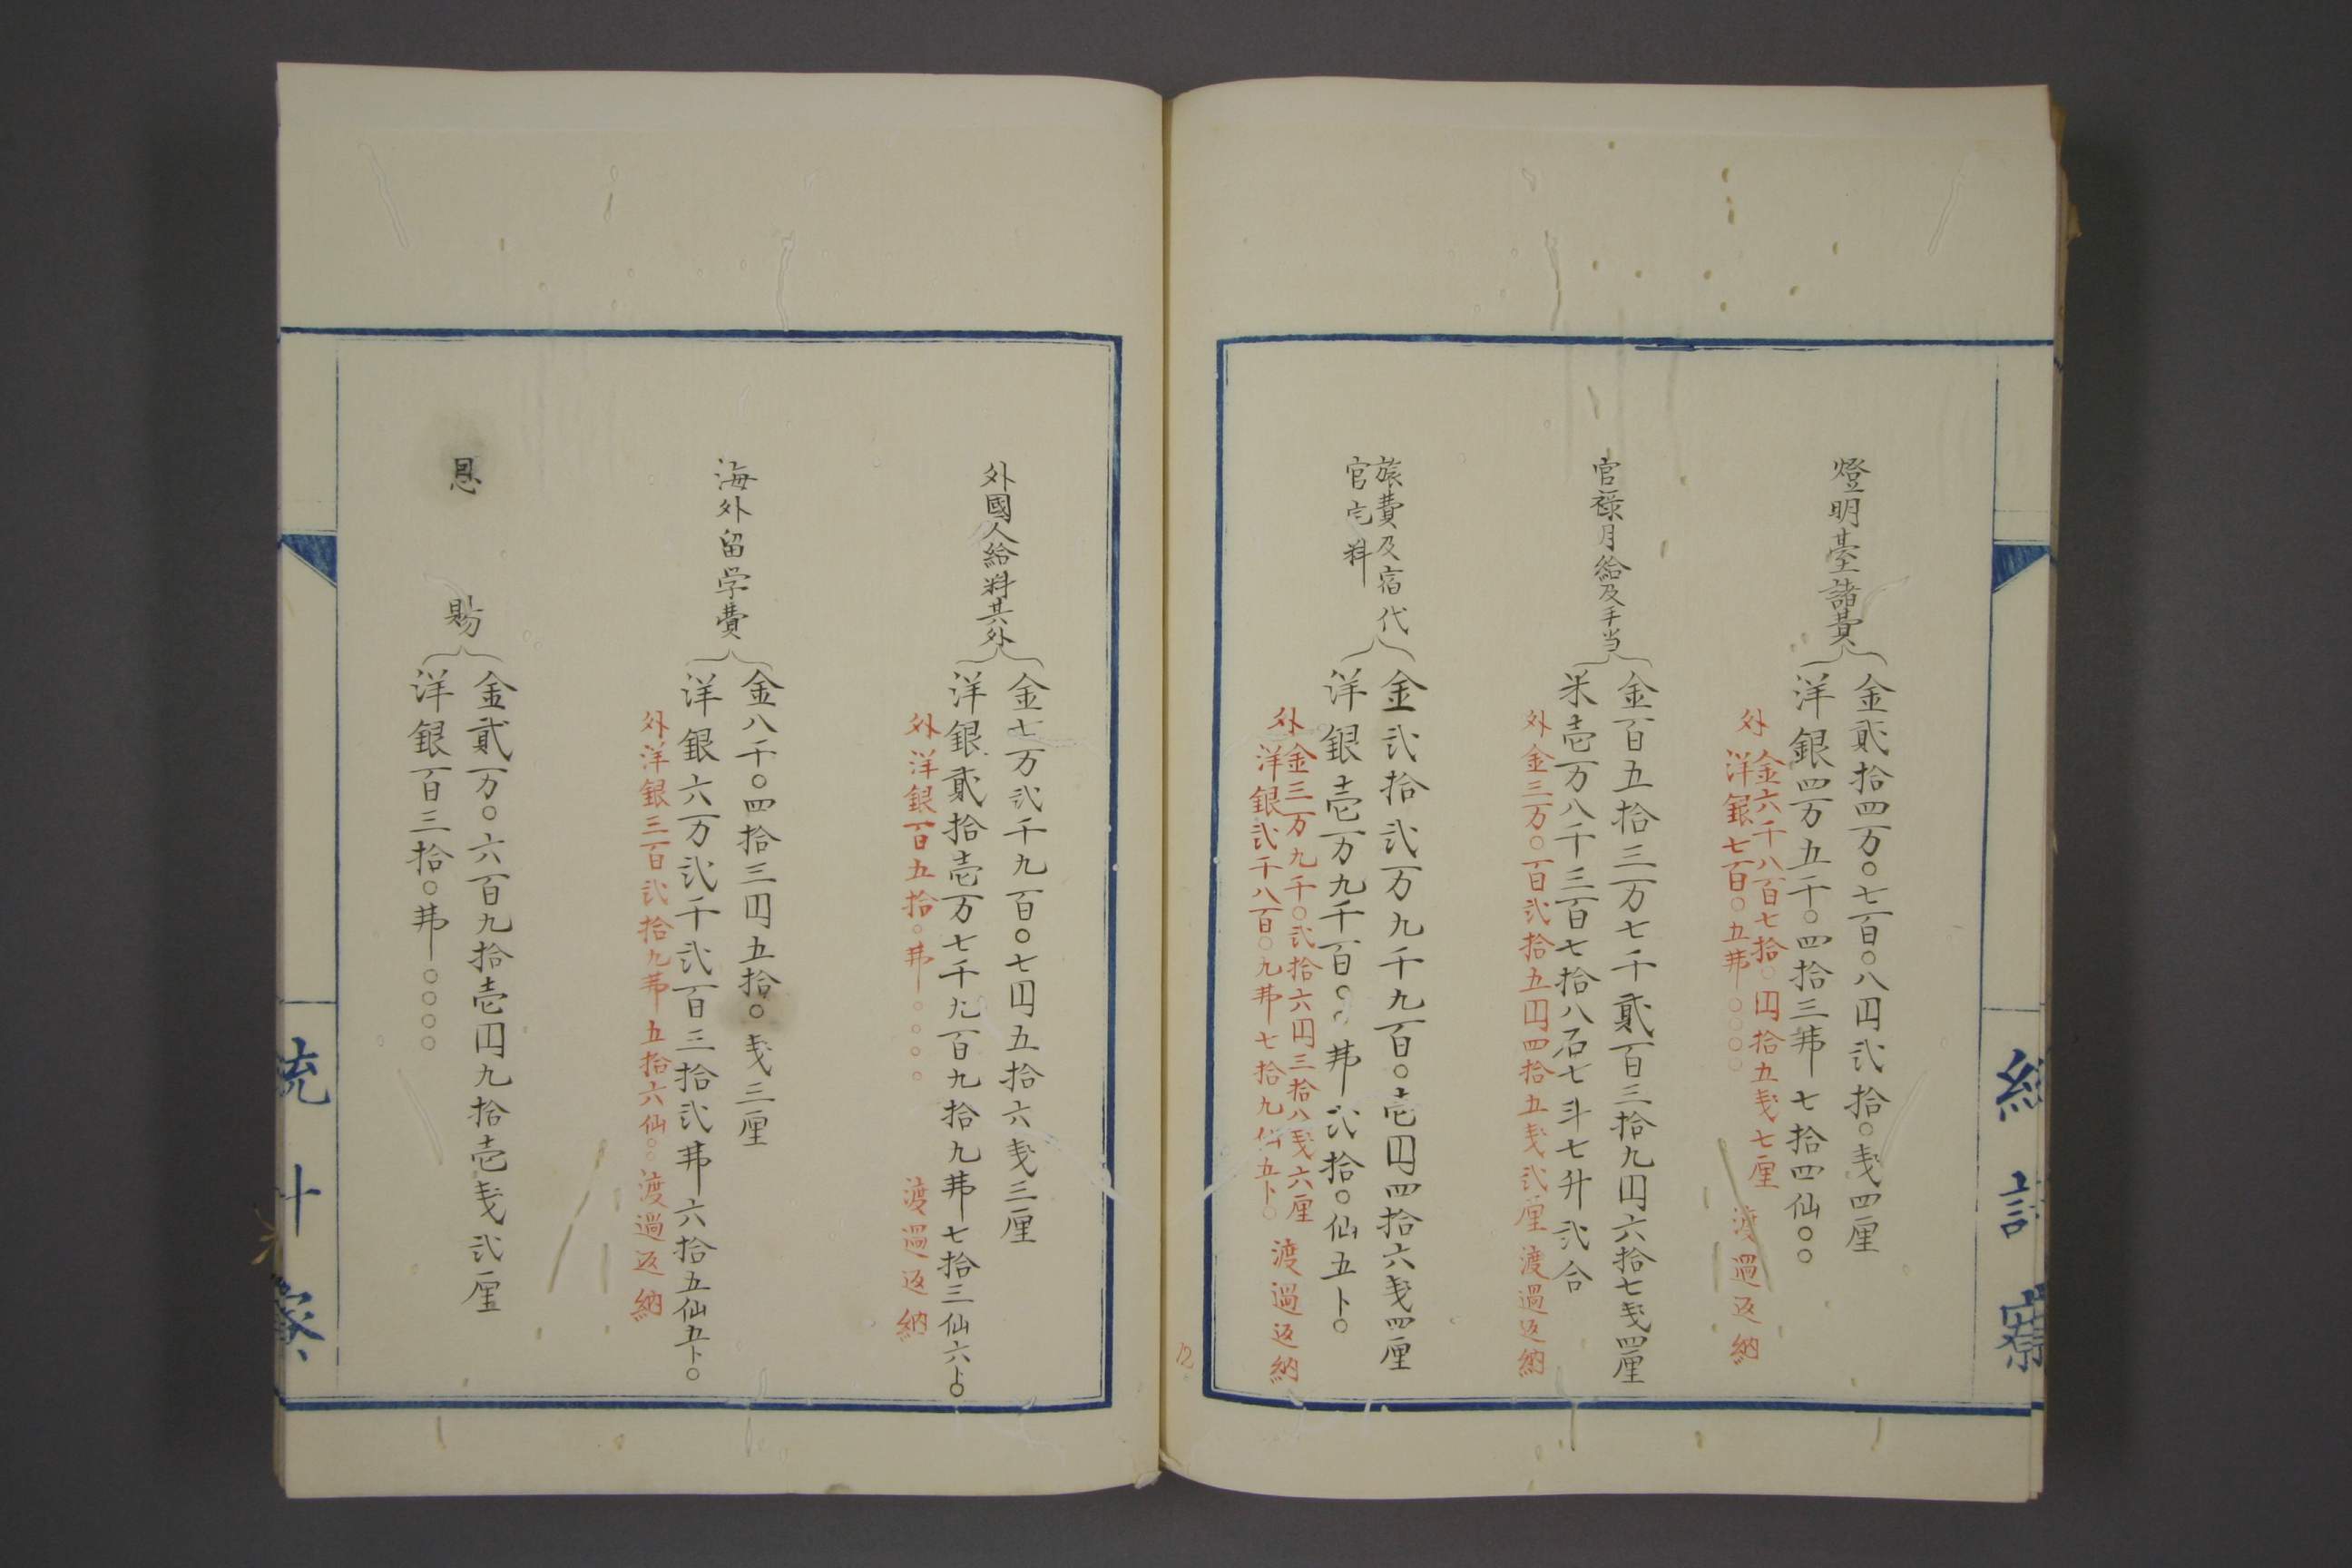 燈明臺諸費
金貳拾四万〇七百〇八円弐拾〇戔四厘
洋銀四万五千〇四拾三弗七拾四仙〇〇
外
金六千八百七拾〇円拾五戔七厘
洋銀七百〇五弗〇〇〇〇
渡過返納
官禄月給及手当
金百五拾三万七千貳百三拾九円六拾七戔四厘
米壱万八千三百七拾八石七斗七升弐合
外金三万〇百弐拾五円四拾五戔弐厘渡過返納
旅費及宿代
官宅料
金弐拾弐万九千九百〇壱円四拾六戔四厘
洋銀壱万九千百〇〇弗弐拾〇仙五卜〇
外
金三万九千〇弐拾六円三拾八戔六厘
洋銀弐千八百〇九弗七拾九仙五卜〇
渡過返納
統計寮
外國人給料其外
金七万弐千九百〇七円五拾六戔三厘
洋銀貳拾壱万七千九百九拾九弗七拾三仙六卜〇
外洋銀百五拾〇弗〇〇〇〇渡過返納
海外留学費
金八千〇四拾三円五拾〇戔三厘
洋銀六万弐千弐百三拾弐弗六拾五仙五卜〇
外洋銀三百弐拾九弗五拾六仙〇〇渡過返納
恩賜
金貳万〇六百九拾壱円九拾壱戔弐厘
洋銀百三拾〇弗〇〇〇〇
統計寮